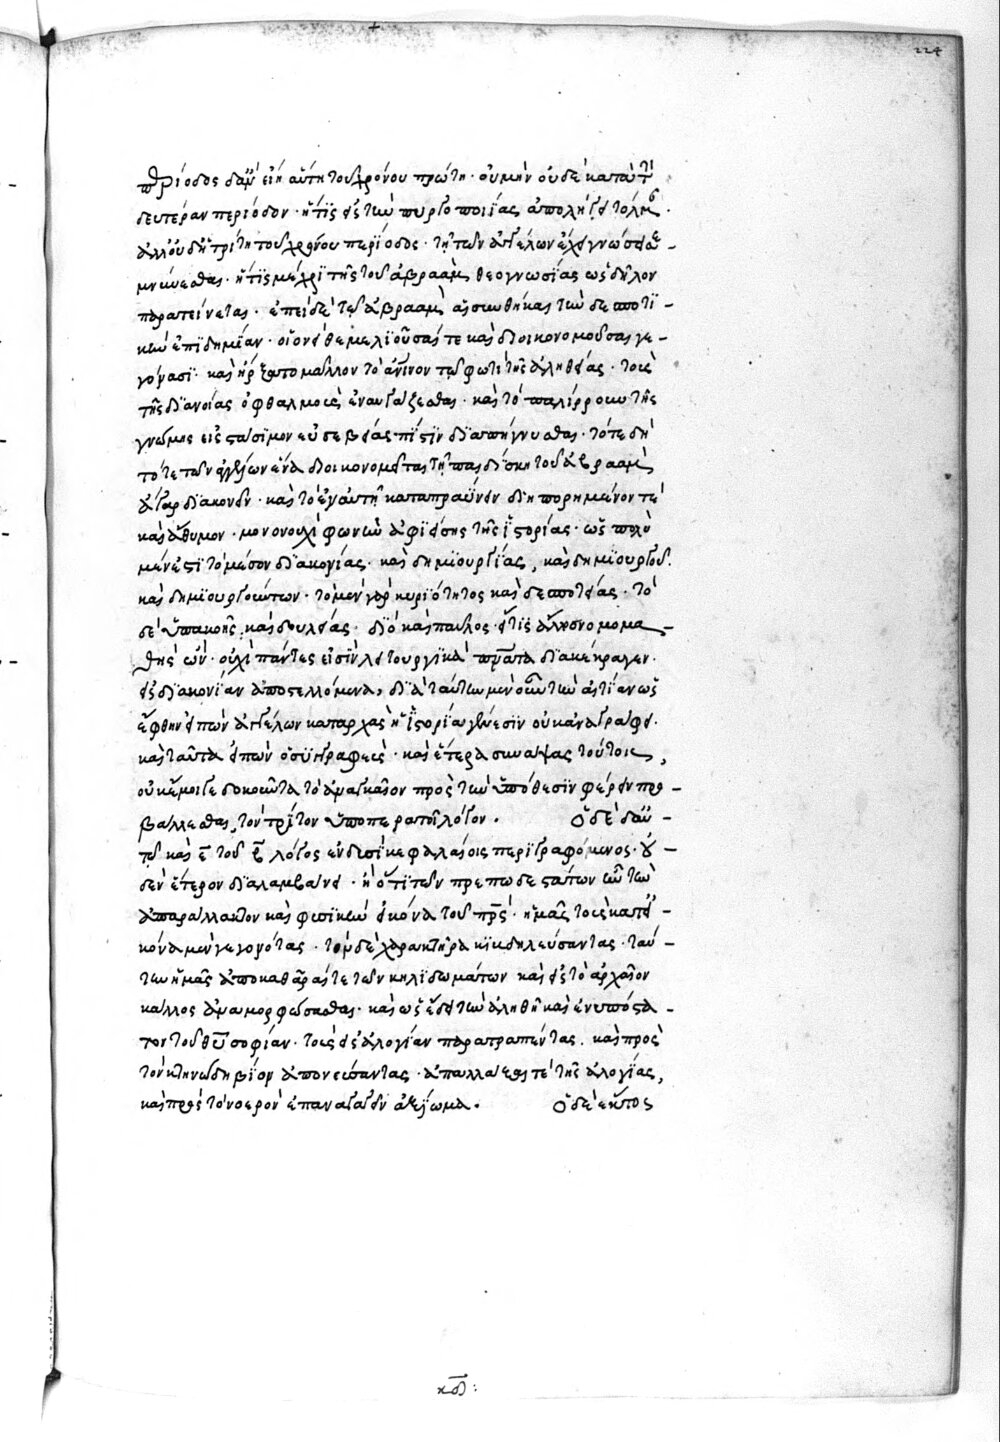 224
περίοδος δ' ἂν εἴη αὕτη τοῦ χρόνου πρώτη· οὐ μὴν οὐδὲ κατὰ τὴν
δευτέραν περίοδον· ἥτις ἐκ τῶν πυργοποιΐας ἀπολήγει
ἀλλ' οὐδ' ἡ τρίτη τοῦ χρόνου περίοδος· τῇ τῶν ἀγγέλων ἐχει γνώσει
μηνύεσθαι· ἥτις μέχρι τῆς τοῦ ἀβραὰμ θεογνωσίας ὡς δῆλον
παρατείνεται· ἐπεὶ δὲ τῷ ἀβραὰμ αἱ συνθῆκαι τὴν δεσποτι-
κὴν ἐπιδημίαν· οἱονεὶ θεμελιοῦσαί τε καὶ διοικονομοῦσαι γε-
γόνασι· καὶ ἤρξατο μᾶλλον τὸ ἀνινον τῷ φωτὶ τῆς ἀληθείας· τοῖς
τῆς διανοίας ὀφθαλμοῖς ἐναυγάζεσθαι· καὶ τὸ παλίρρουν τῆς
γνώμης εἰς στάσιμον εὐσεβείας πίστιν διαπήγνυσθαι· τότε δὴ
τότε τῶν ἀγγέλων ἕνα διοικονομεῖται τῇ παιδίσκῃ τοῦ ἀβραὰμ
ἄγαρ διακονεῖν· καὶ τὸ ἐν αὐτῇ καταπραΰνειν διηπορημένον τὲ
καὶ ἄθυμον· μονονουχὶ φωνὴν ἀφιείσης τῆς ἱστορίας· ὡς πολὺ
μέν ἐστι τὸ μέσον διακονίας· καὶ δημιουργίας, καὶ δημιουργοῦ·
καὶ δημιουργούντων· τὸ μὲν γὰρ κυριότητος καὶ δεσποτείας· τὸ
δὲ ὑπακοῆς καὶ δουλείας· διὸ καὶ παῦλος· εἴ τις ἄλλος νομομα-
θὴς ὤν· οὐχὶ πάντες εἰσὶ λειτουργικὰ πνεύματα διακέκραγεν·
εἰς διακονίαν ἀποστελλόμενα, διὰ ταύτην μὲν οὖν τὴν αἰτίαν ὡς
ἔφθην εἰπὼν ἀγγέλων καταρχὰς ἡ ἱστορία γένεσιν οὐκ ἀναγράφει·
καὶ ταῦτα εἰπὼν ὁ συγγραφεὺς· καὶ ἕτερα συνάψας τούτοις,
οὐκ ἔμοιγε δοκοῦντα τὸ ἀναγκαῖον πρὸς τὴν ὑπόθεσιν φέρειν προ-
βάλλεσθαι, τὸν τρίτον ὑποπερατοῖ λόγον· Ὁ δὲ δ' αὖ
τῷ καὶ εος τοῦ λόγος ἐν δυσὶ κεφαλαίοις περιγραφόμενος· οὐ-
δὲν ἕτερον διαλαμβάνει· ἢ ὅτι τῶν πρεπωδεστάτων ὂν τὴν
ἀπαράλλακτον καὶ φυσικὴν εἰκόνα τοῦ πρς· ἡμᾶς τοὺς κατ' εἰ-
κόνα μὲν γεγονότας· τὸν δὲ χαρακτῆρα κιβδηλεύσαντας· ταύ-
την ἡμᾶς ἀποκαθᾶραί τε τῶν κηλιδωμάτων καὶ εἰς τὸ ἀρχαῖον
κάλλος ἀναμορφώσασθαι· καὶ ὡς ἔδει τὴν ἀληθῆ καὶ ἐνυπόστα-
τον τοῦ θυ σοφίαν· τοὺς εἰς ἀλογίαν παρατραπέντας· καὶ πρὸς
τὸν κτηνώδη βίον ἀπονεύσαντας· ἀπαλλάξαι τὲ τῆς ἀλογίας,
καὶ πρὸς τὸ νοερὸν ἐπαναγαγεῖν ἀξίωμα· Ὁ δὲ ἕκτος
κδ: